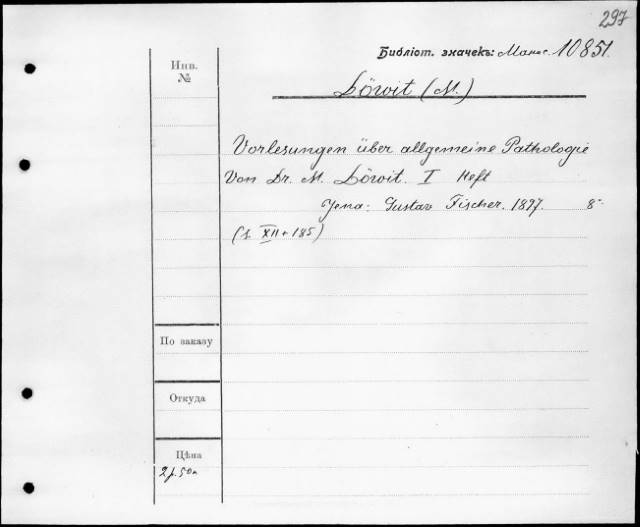 297
Библіот. значекъ: Манас. 10851.
Инв.
№
Löwit (M.)
Vorlesungen über allgemeine Pathologie
Von Dr. M. Löwit. I Heft
Jena: Gustav Fischer. 1897. 8-
(S. XII + 185)
По заказу
Откуда
Цѣна
2 р. 50 к